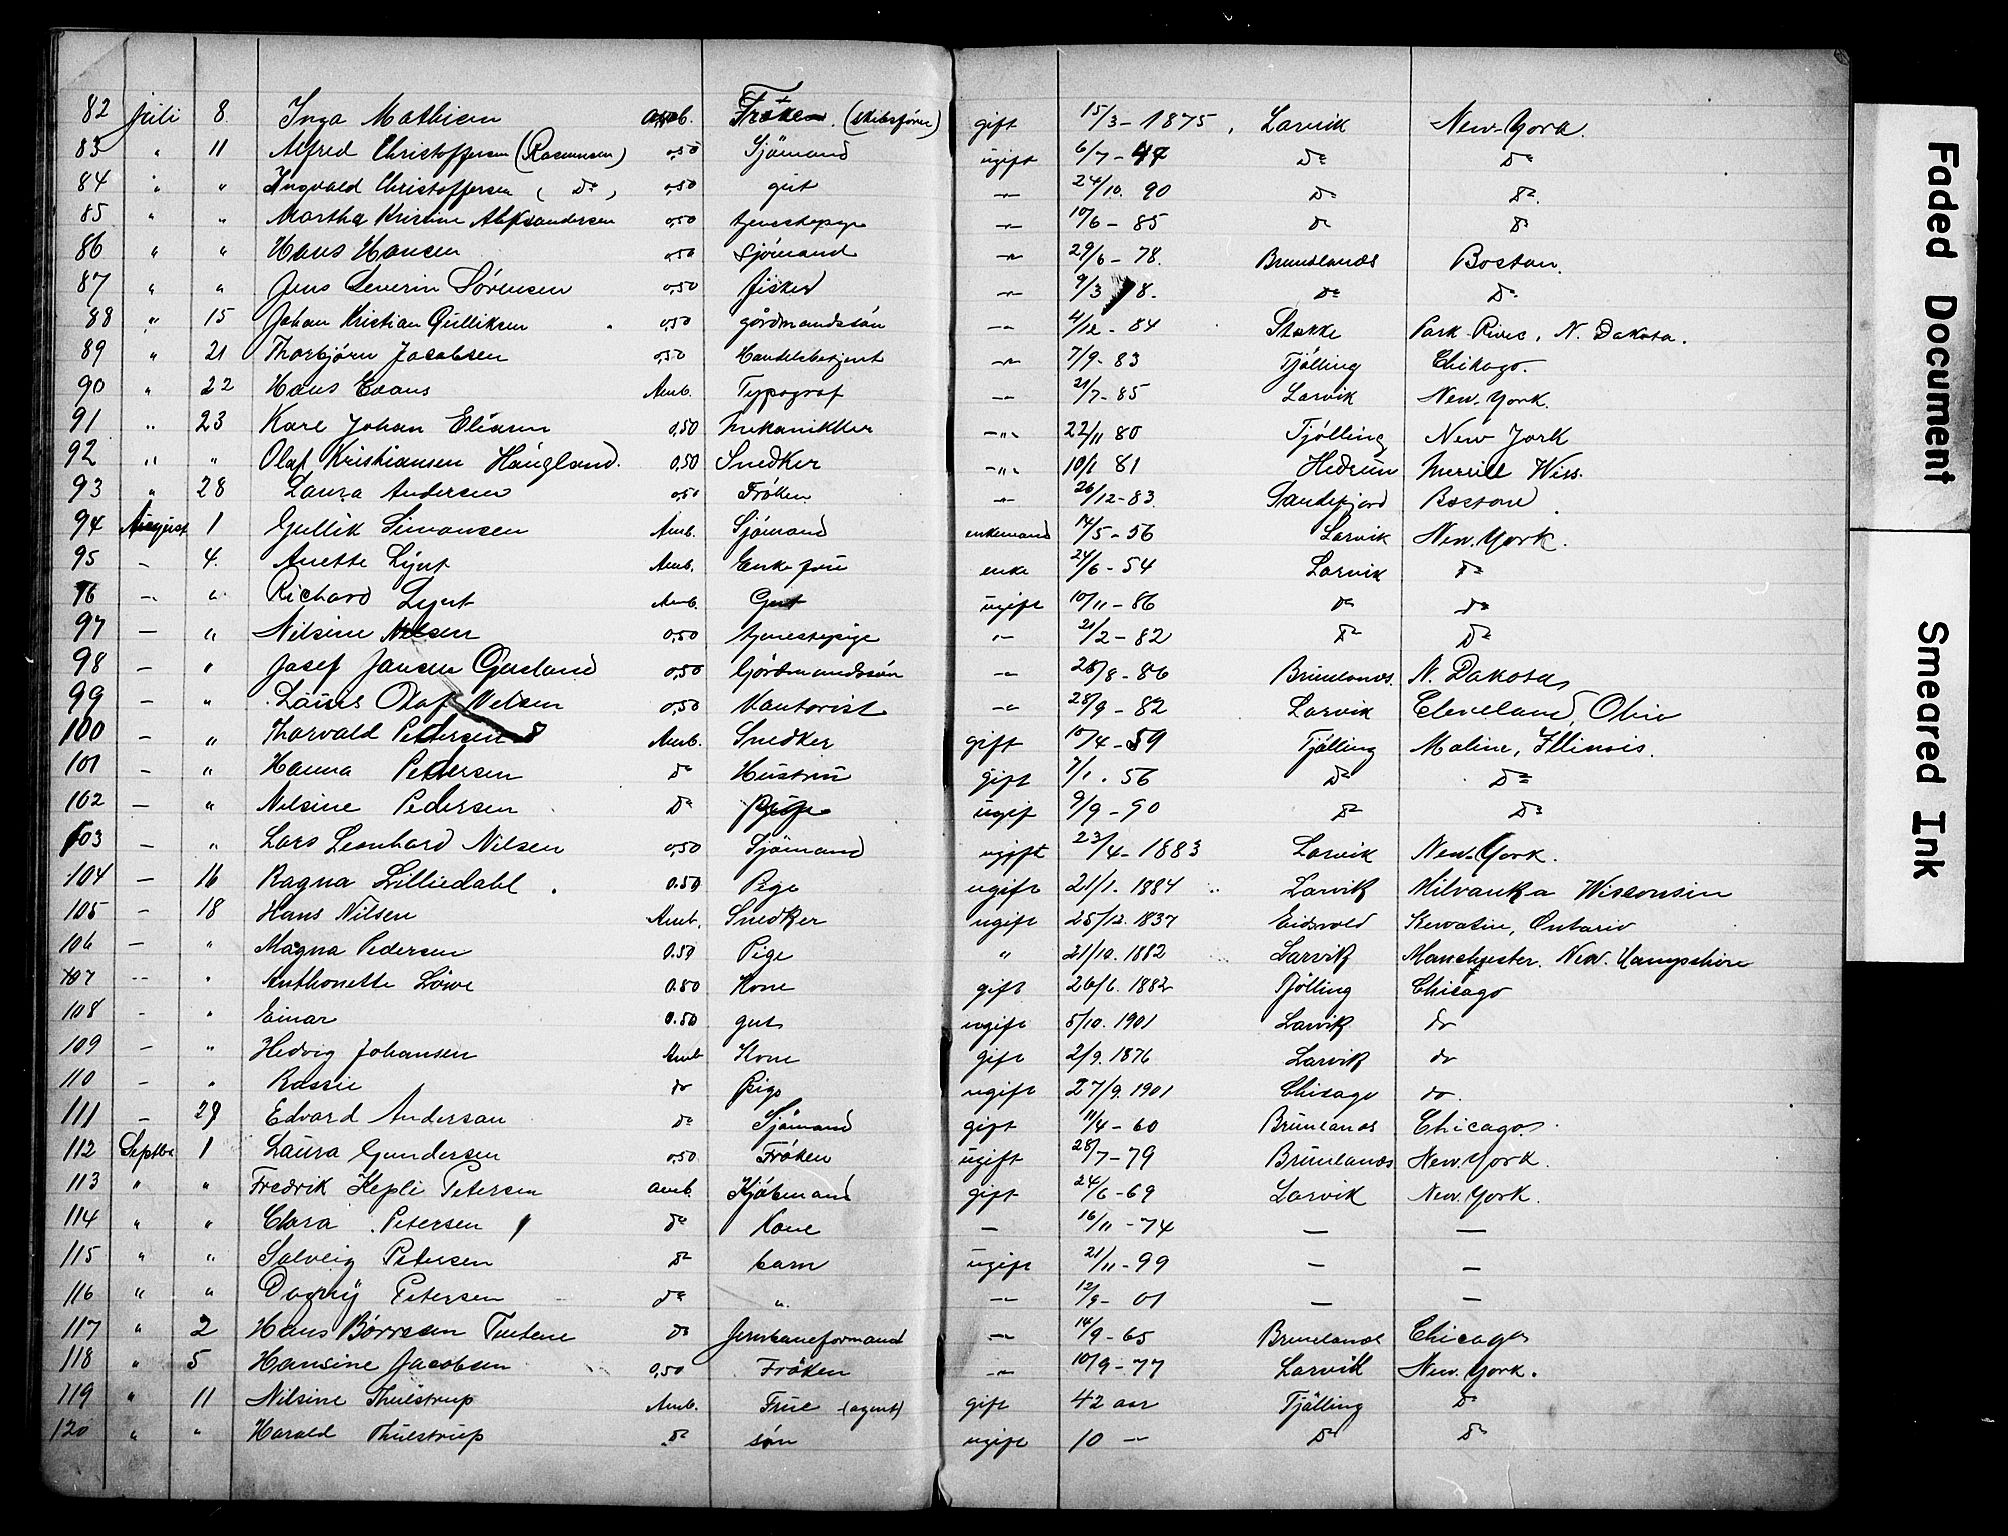 82 Juli 8. Inga Mathisen Amb. Frøken (skibsfører) gift 15/3-1875, Larvik New-York.
83 " 11 Alfred Christoffersen (Rasmussen) 0,50 Sjömand ugift 6/7- Do Do
84 " " Ingvald Christoffersen ( Do ) 0,50 gut -"- 24/10. 90 Do Do.
85 " " Martha Kristine Aleksandersen 0,50 tjenestepige -"- 10/6-85 Do Do
86 " " Hans Hansen 0,50 Sjömand -"- 29/6-78. Brunlanæs Boston.
87 " " Jens Severin Sörensen 0,50 fisker -"- 9/3 8. Do Do
88 " 15 Johan Kristian Gulliksen 0,50 gårdmandssön -"- 4/12-84 Stokke Park River, N. Dakota.
89 " 21 Thorbjörn Jacobsen 0,50 Handelsbetjent -"- 7/9-83 Tjölling Chikago.
90 " 22 Hans Evans Amb. Typograf -"- 21/7-85 Larvik New-York.
91 " 23 Karl Johan Eliasen 0,50 Mekanikker -"- 22/11 80 Tjölling New York
92 " " Olaf Kristiansen Haugland. 0,50 Snedker -"- 10/1 81 Hedrum Merrill Wiss.
93 " 28 Laura Andersen 0,50 Fröken -"- 26/12-83. Sandefjord Boston.
94 August 1 Gullik Simonsen Amb. Sjömand enkemand 14/5-56 Larvik New York.
95 - 4. Anette Lynt Amb. Enkefru enke 24/6-54 Larvik Do
96 - " Richard Lynt Amb. Gut ugift 10/11-86 Do Do
97 - " Nilsine Nilsen 0,50 tjenestepige "- 21/2-82 Do Do
98 - " Josef Jansen Gjerland 0,50 Gårdmandssön -"- 26/8-86 Brunlanæs. N. Dakota
99 - " Laurs Olaf Nelsen 0,50 Kontorist -"- 28/9-82 Larvik Cleveland, Ohio
100 - " Thorvald Pettersen Amb. Snedker gift 10/4-59 Tjölling Moline, Illinois.
101 - " Hanna Pedersen Do Hustru gift 7/1. 56 Do Do
102 - " Nilsine Pedersen Do Pige ugift 9/9-90 Do Do
103 - " Lars Leonhard Nilsen 0,50 Sjömand ugift 23/4-1883 Larvik New-York.
104 - 16 Ragna Lilliedahl. 0.50 Pige ugift 21/1. 1884 Larvik Milvauka Wisconsin
105 - 18 Hans Nilsen Amb. Snedker ugift 25/12. 1837 Eidsvold Kewatin, Ontario
106 - " Magna Pedersen 0.50 Pige " 21/10. 1882 Larvik Manchester. New. Hampshire
107 -- " Anthonette Löwe 0.50 Kone gift 26/6. 1882 Tjölling Chicago
108 - " Einar 0.50 gut ugift 5/10. 1901 Larvik do
109 - " Hedvig Johansen Amb Kone gift 2/9. 1876 Larvik do
110 - " Rassie do Pige ugift 27/9. 1901 Chicago do.
111 - 29 Edvard Anderson Do Sjömand gift 11/4-60 Brunlanæs Chicago.
112 Septbr 1 Laura Gundersen 0,50 Fröken ugift 28/7-79 Brunlanæs New York.
113 " " Fredrik Kepli Petersen Amb. Kjöbmand gift 24/6-69 Larvik New. York.
114 " " Clara Petersen Do Kone - 16/11-74 - -
115 " " Solveig Petersen Do barn ugift 21/11-99 - -
116 " " Dagny Petersen Do " -"- 12/9- 01 - -
117 " 2 Hans Börresen Do Jernbaneformand -"- 14/9-65 Brunlanæs Chicago
118 " 5 Hansine Jacobsen 0,50 Fröken -"- 10/9-77 Larvik New. York.
119 " 11 Nilsine Thulstrup Amb. Frue (agent) gift 42 aar Tjölling Do
120 " " Harald Thulstrup Do sön ugift 10 - Do Do
Faded Document
Smeared Ink